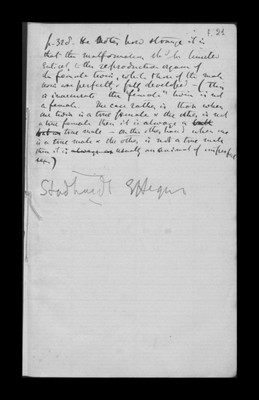 1. 21
p. 328. He notes how strange it is
that the malformation shd be limited
entirely to the reproductive organs of
the female twin, whilst those of the male
were perfectly & fully developed — (This
is inaccurate the female twin is not
a female. The case rather is that when
one twin is a true female & the other is not
a true female then it is always a
true male — on the other hand when one
is a true male & the other is not a true male
then it is always an usually an animal of imperfect
sex.)